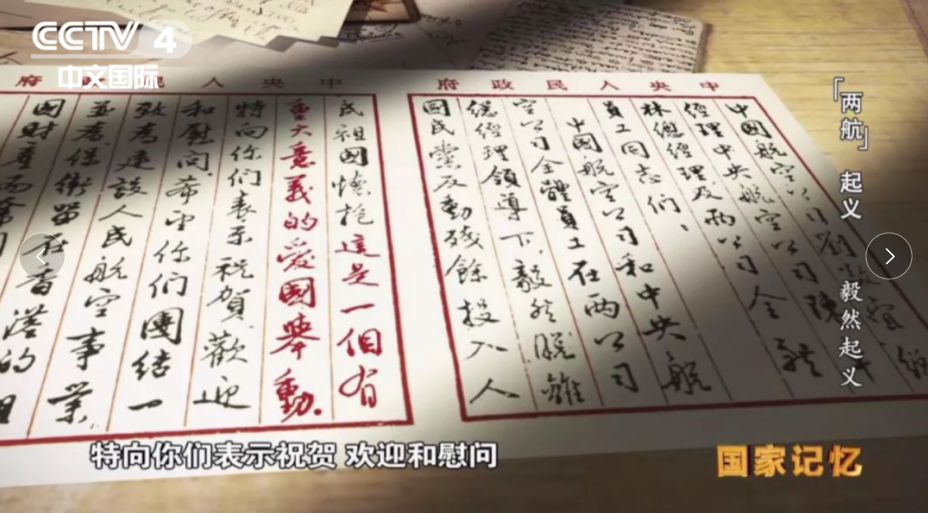 CCTV 4
中文国际
中央人民政府
中國航空公司劉敬宜總
經理中央航空公司陳卓
林總經理及兩公司全體
員工同志們、
中國航空公司和中央航
空公司全體員工在兩公司
總經理領導下、毅然脫離
國民黨反動殘餘投入人
民祖國懷抱這是一個有
重大意義的愛國舉動.
特向你們表示祝賀、歡迎
和慰問.希望你們團結一
致為建設人民航空事業
並為保衛留在香港的祖
國財產而奮
「两航」起义
毅然起义
特向你们表示祝贺 欢迎和慰问
国家记忆